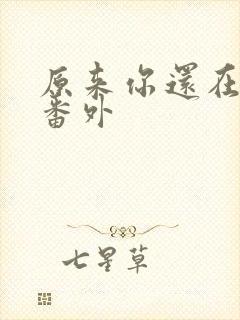 原来你還在
番外
七星草